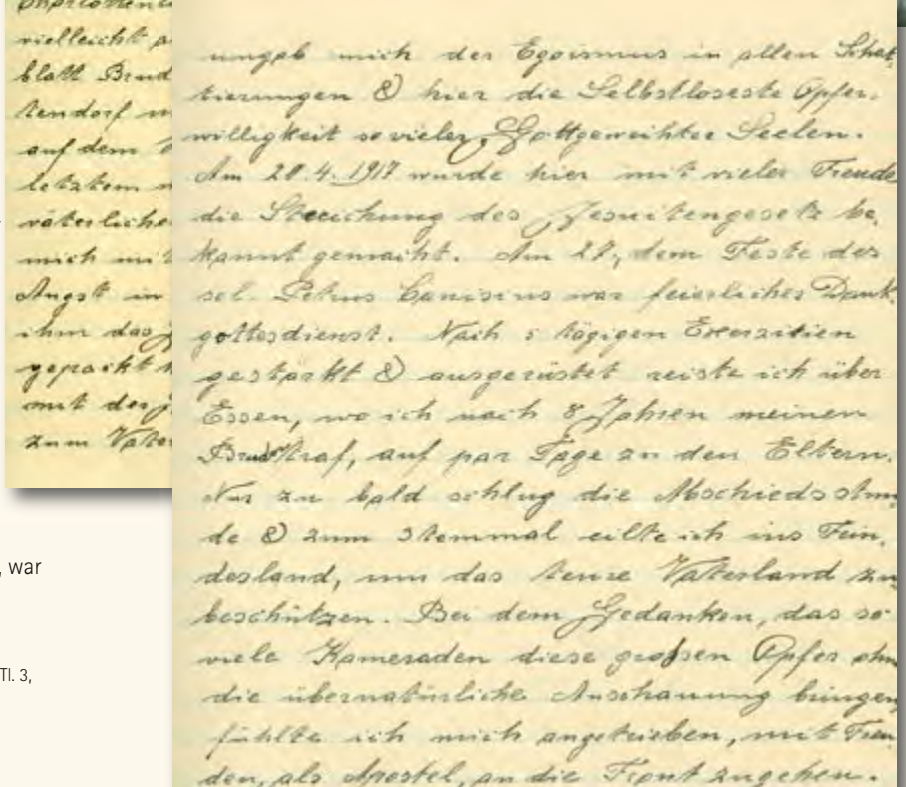 vielleicht
blatt Brud
tendorf
auf dem
letztem
väterliche
mich mit
Angst in
ihm das
gepackt
mit der
zum Vater
umgab mich der Egoismus in allen Schat-
tierungen & hier die Selbstloseste Opfer-
willigkeit sovieler Gottgeweihter Seelen.
Am 20.4.1917 wurde hier mit vieler Freude
die Streichung des Jesuitengesetz be-
kannt gemacht. Am 27, dem Feste des
sel. Petrus Canisius war feierlicher Dank-
gottesdienst. Nach 5 tägigen Exerzitien
gestärkt & ausgerüstet reiste ich über
Essen, wo ich nach 8 Jahren meinen
Bruder traf, auf par Tage zu den Eltern.
Nur zu bald schlug die Abschiedsstun
de & zum 3temmal eilte ich ins Fein-
desland, um das teure Vaterland zu
beschützen. Bei dem Gedanken, das so
viele Kameraden diese grossen Opfer ohn
die übernatürliche Anschauung bringen
fühlte ich mich angetrieben, mit Freu
den, als Apostel, an die Front zugehen.
, war
Tl. 3,